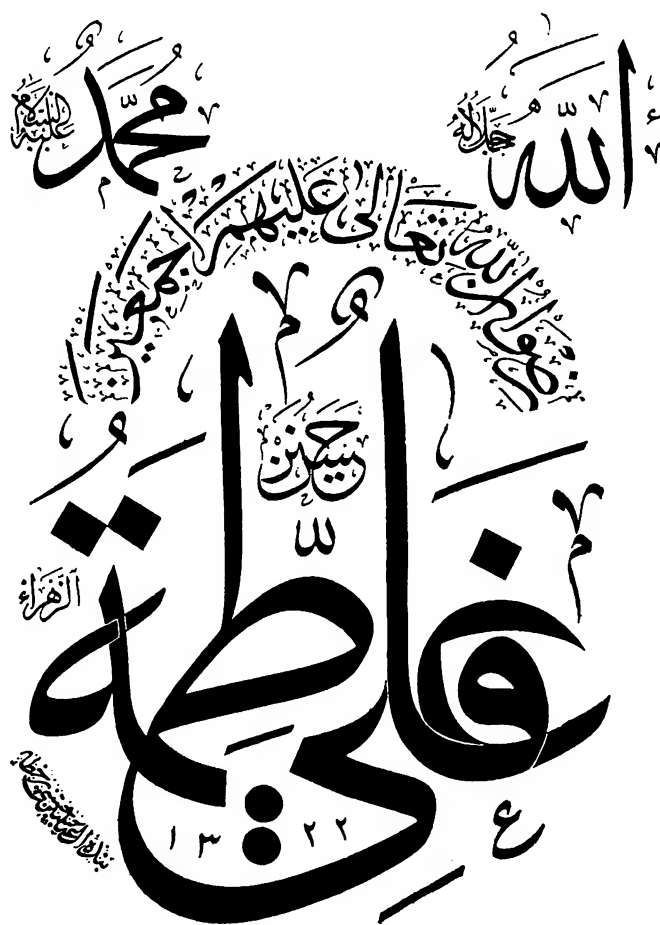 اللّٰه جلّ جلاله
محمّد عليه السلام
رضوان الله تعالى عليهم اجمعين
حسن حسين
علي فاطمة
الزهراء
١٣٢٢